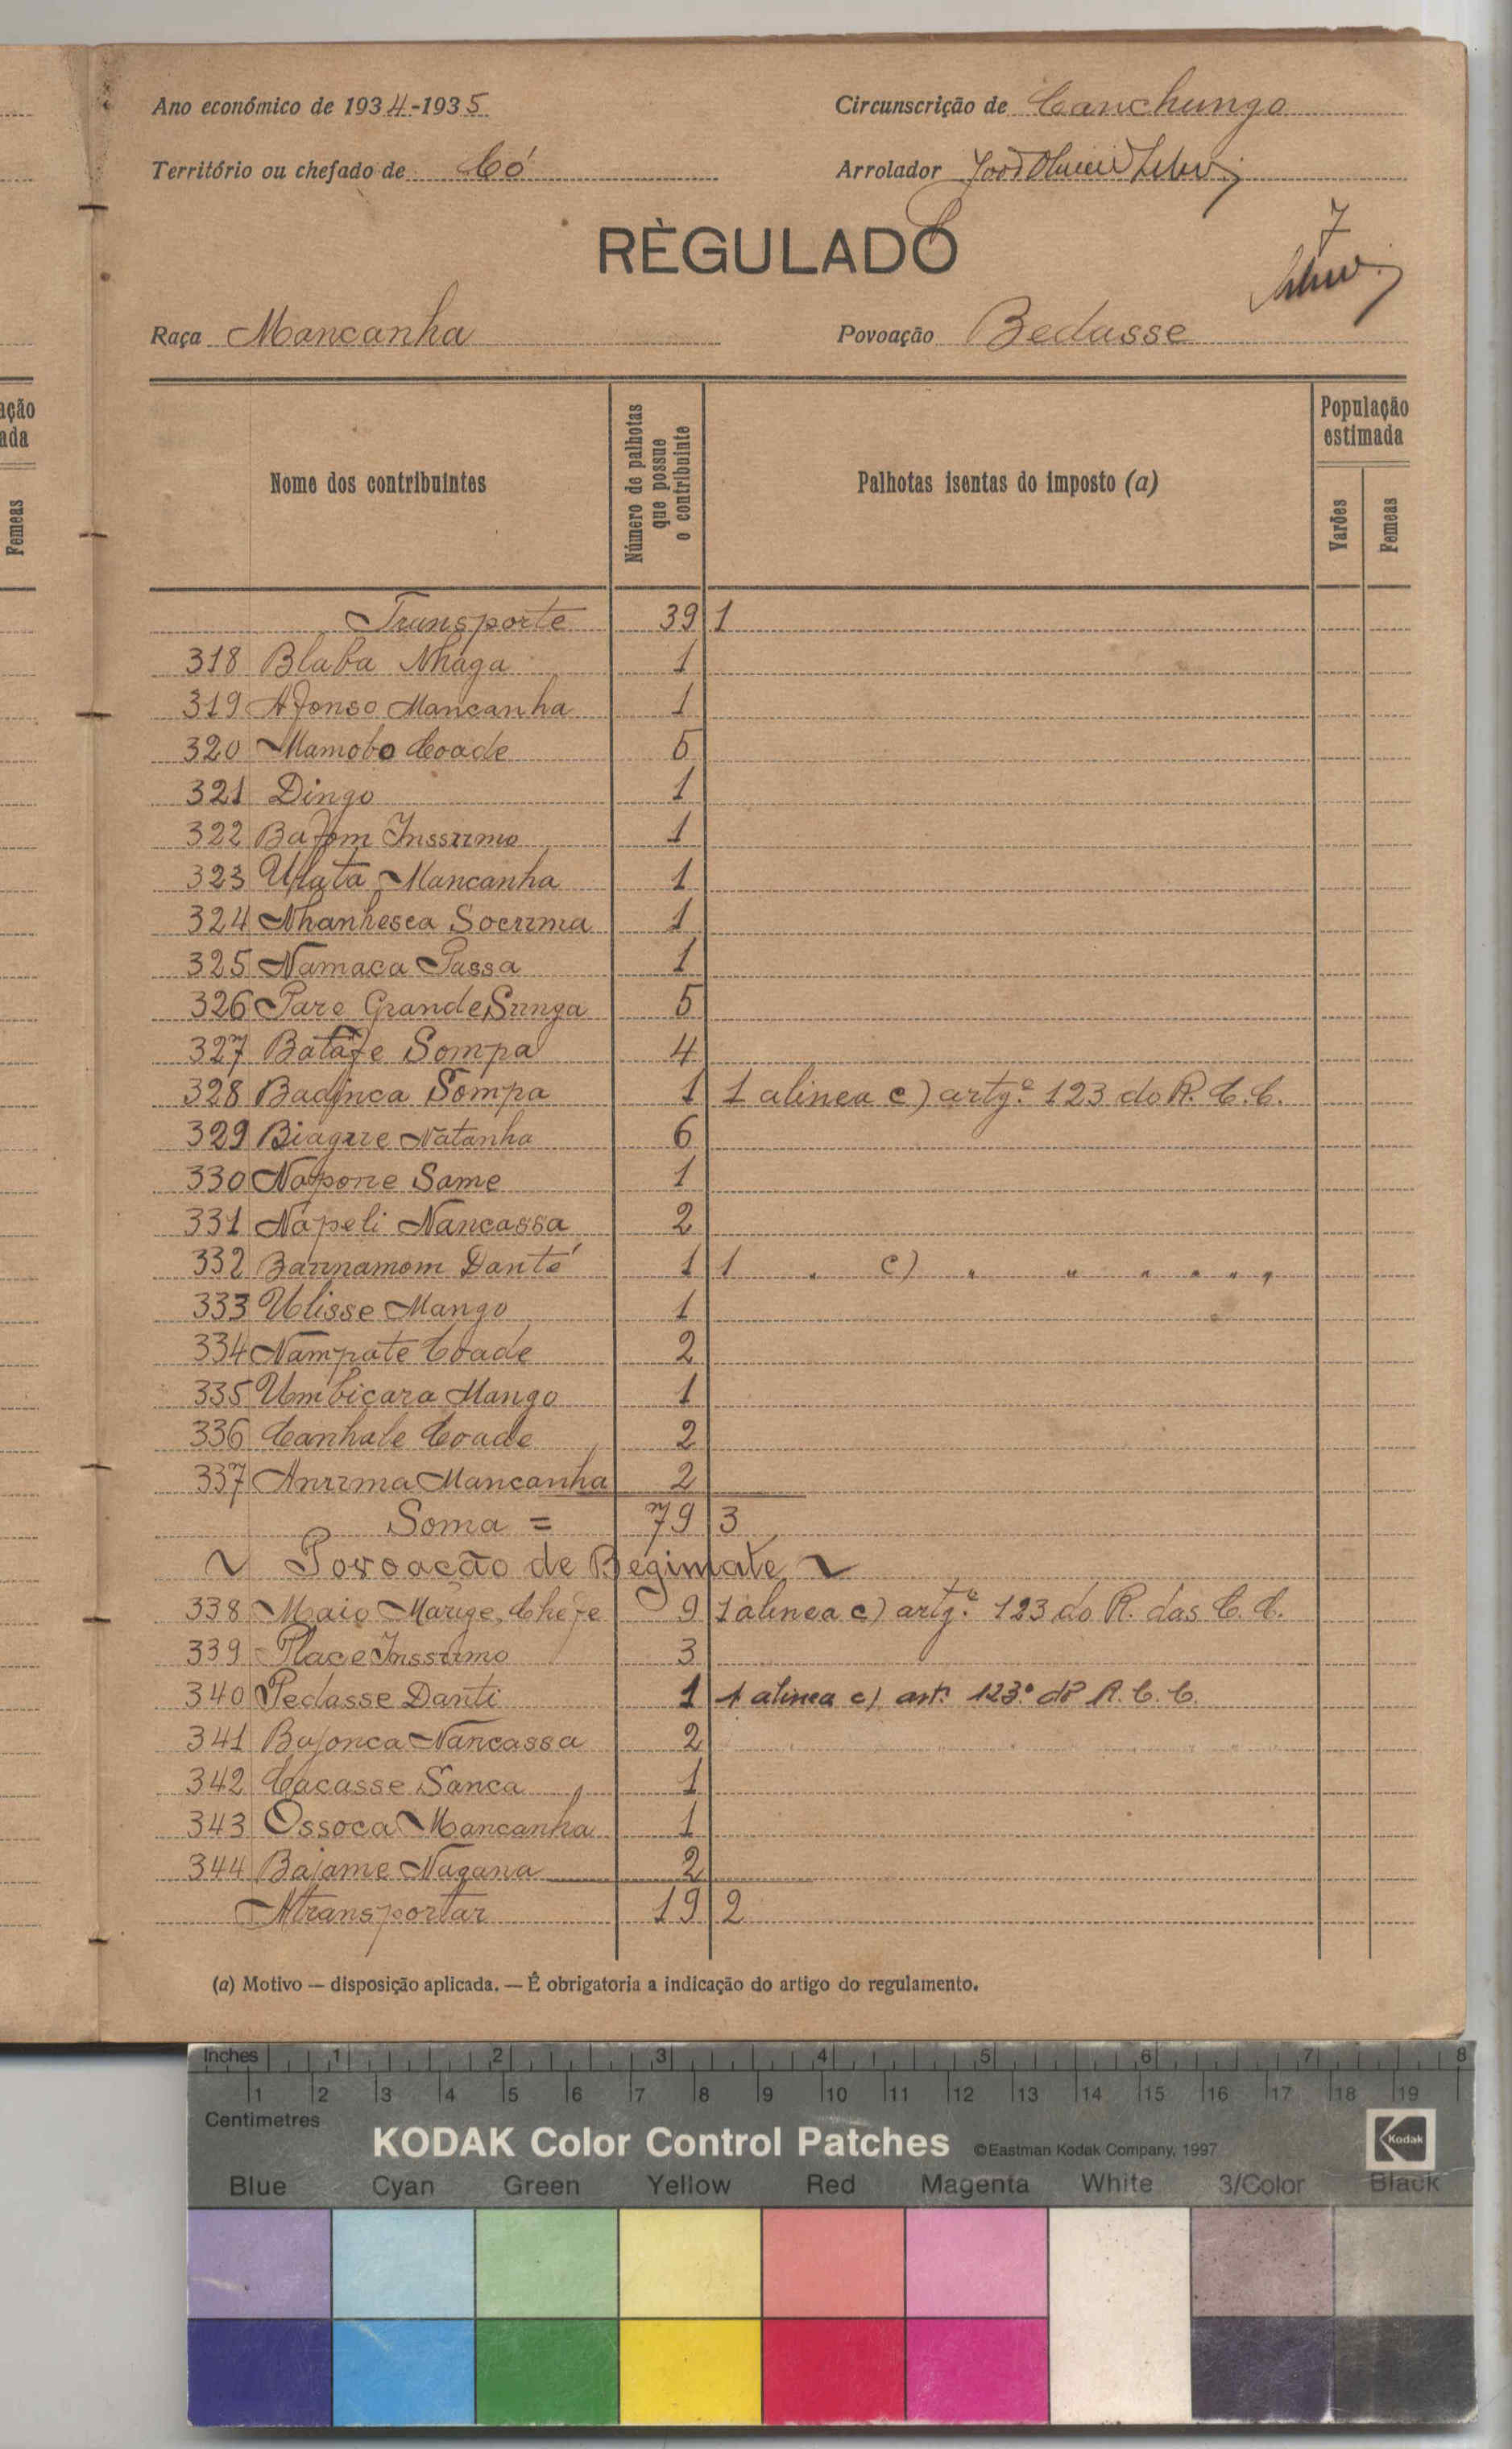 ação
ada
Femeas
Ano económico de 1934-1935
Circunscrição de Canchungo
Território ou chefado de Có
Arrolador
RÈGULADO
7
Raça Mancanha
Povoação Bedasse
Nome dos contribuintes
Número de palhotas que possue o contribuinte
Palhotas isentas do imposto (a)
População estimada
Varões
Femeas
Transporte 39 1
318 Blaba Nhaga 1
319 Afonso Mancanha 1
320 Mamobo Coade 5
321 Dingo 1
322 Bafom Inssumo 1
323 Ulata Mancanha 1
324 Nhanhesca Socuma 1
325 Namaca Passa 1
326 Pare Grande Sunga 5
327 Batafe Sompa 4
328 Badinca Sompa 1 1 alinea c) artgº 123 do R. C. C.
329 Biague Natanha 6
330 Napone Same 1
331 Napeli Nancassa 2
332 Baunamom Danté 1 1 " c) " " " " " "
333 Ulisse Mango 1
334 Nampate Coade 2
335 Umbicara Mango 1
336 Canhale Coade 2
337 Anuma Mancanha 2
Soma = 79 3
~ Povoacão de Begimate ~
338 Maio Marige, Chefe 9 1 alinea c) artgº 123 do R. das C. C.
339 Place Inssumo 3
340 Pedasse Danti 1 1 alinea c) artº 123º do R. C. C.
341 Bajonca Nancassa 2
342 Cacasse Sanca 1
343 Ossoca Mancanha 1
344 Bajame Nagana 2
Atransportar 19 2
(a) Motivo — disposição aplicada. — É obrigatoria a indicação do artigo do regulamento.
Inches 1 2 3 4 5 6 7 8
1 2 3 4 5 6 7 8 9 10 11 12 13 14 15 16 17 18 19
Centimetres
KODAK Color Control Patches ©Eastman Kodak Company, 1997 Kodak
Blue Cyan Green Yellow Red Magenta White 3/Color Black